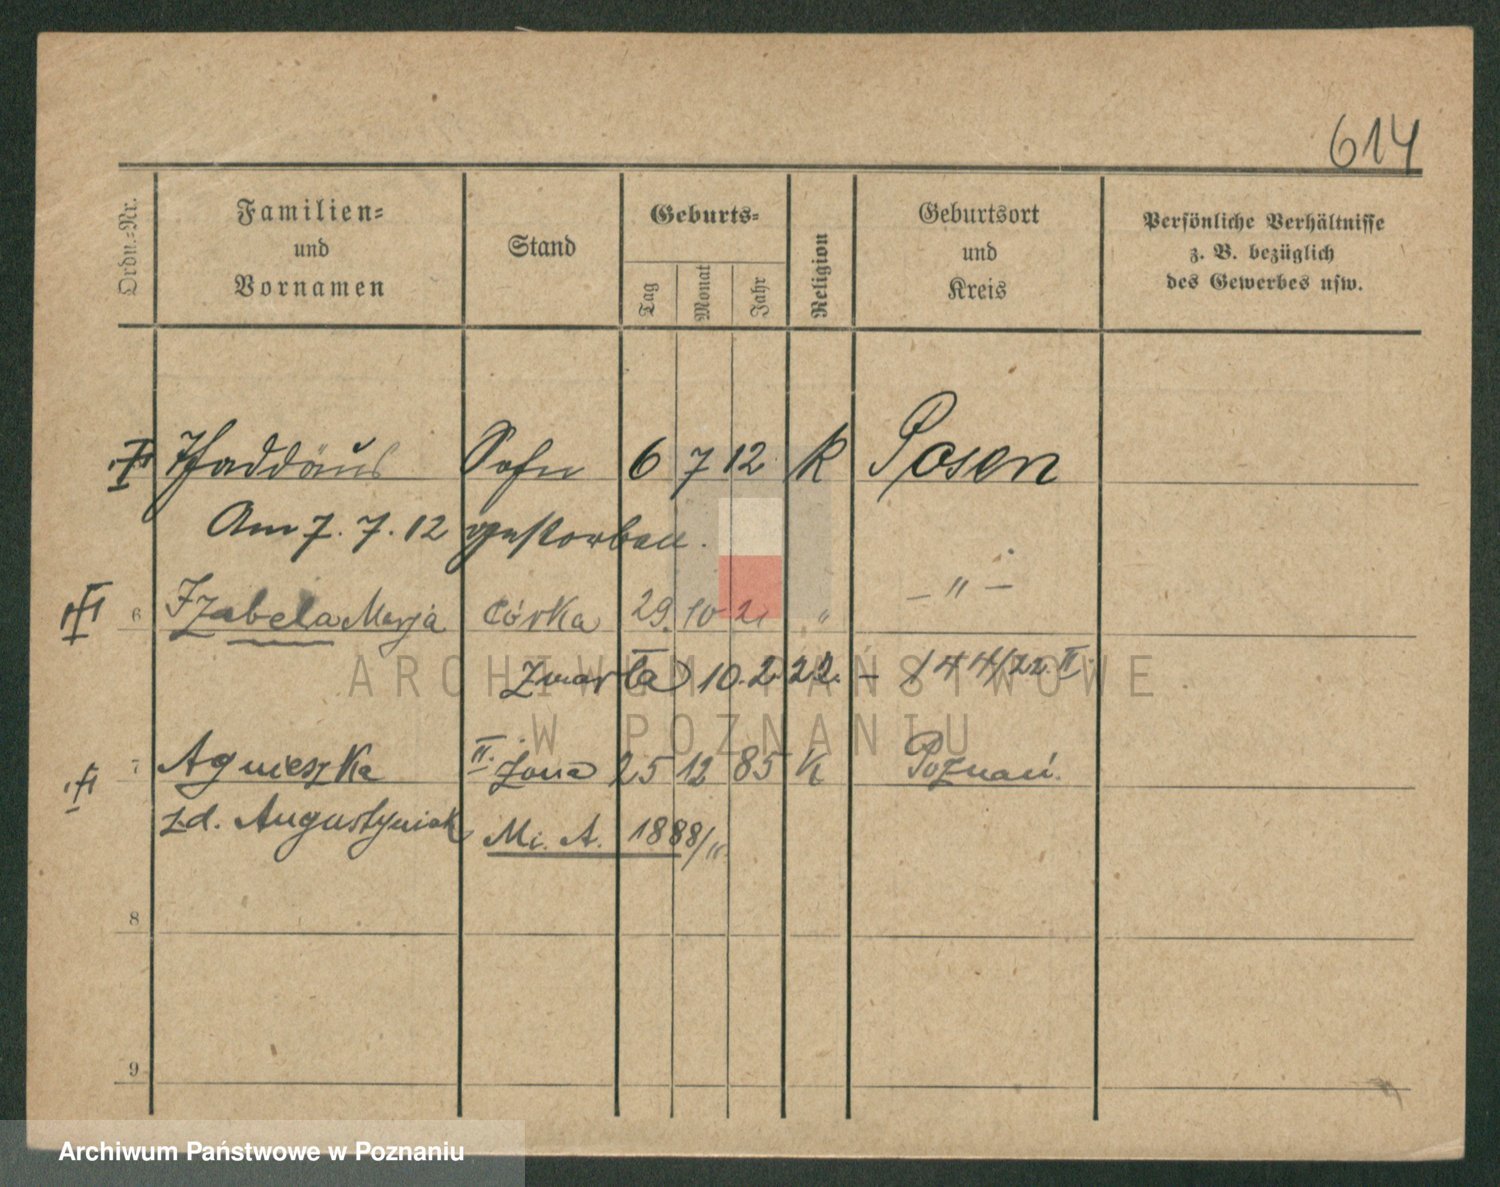 614
Ordn.-Nr.
Familien-
und
Vornamen
Stand
Geburts-
Tag
Monat
Jahr
Religion
Geburtsort
und
Kreis
Persönliche Verhältnisse
z. B. bezüglich
des Gewerbes usw.
Thaddäus Sohn 6 7 12 k Posen
Am 7. 7. 12 gestorben.
6 Izabela Marja córka 29. 10 21 " — " —
Zmarła 10. 2. 22. — 144/22. II.
7 Agnieszka II. żona 25 12 85 k Poznań.
zd. Augustyniak Mi. A. 1888/"
8
9
ARCHIWUM PAŃSTWOWE
W POZNANIU
Archiwum Państwowe w Poznaniu